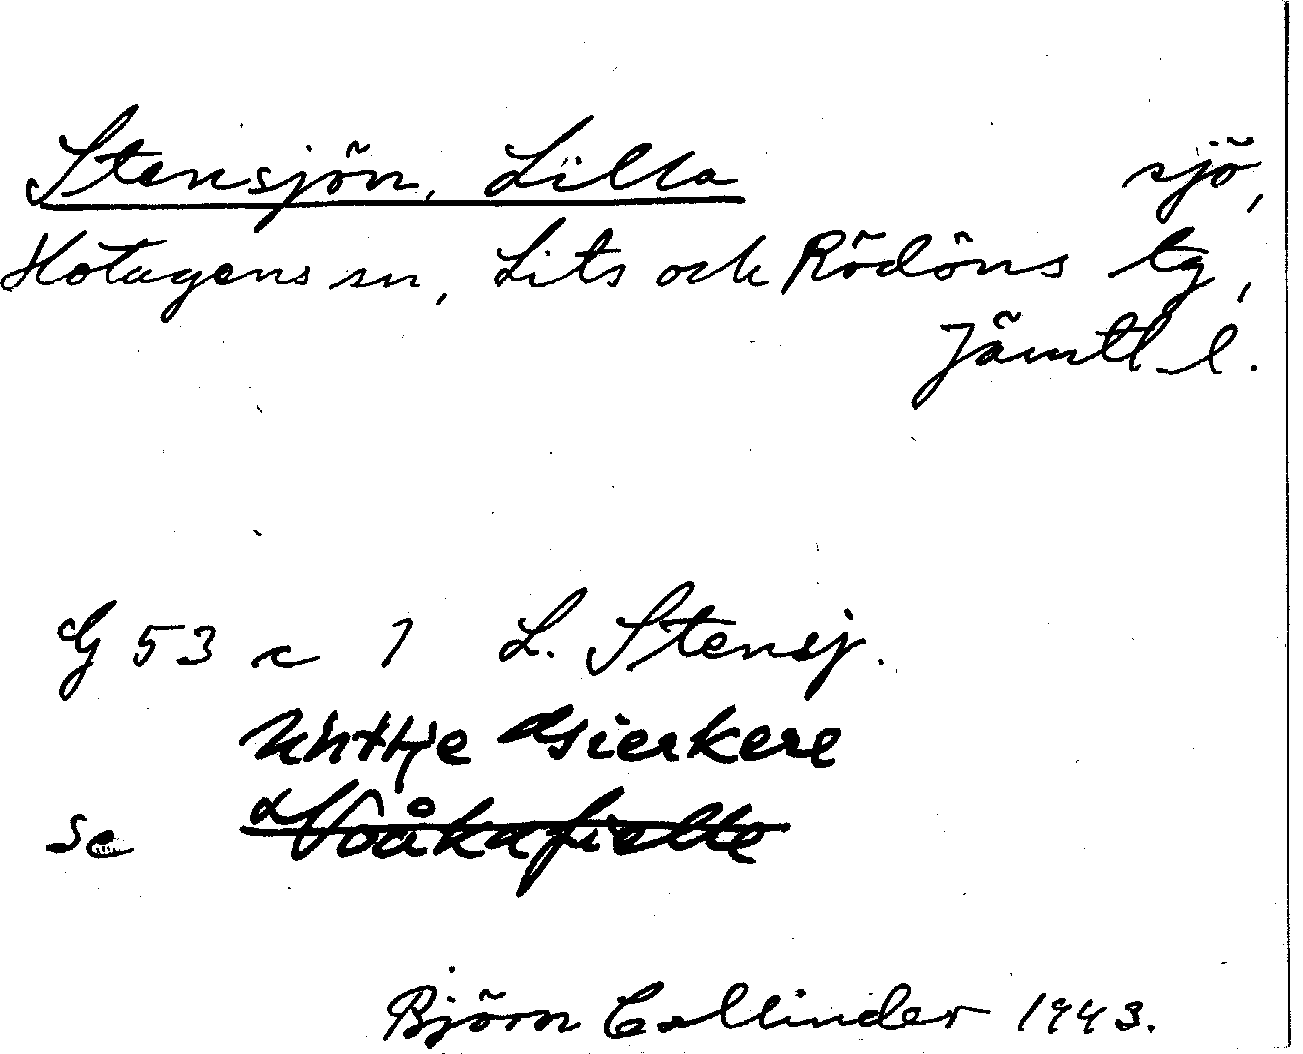 Stensjön, Lilla sjö,
Hotagens sn, Lits och Rödöns tg,
Jämtl l.
G 53 c 1 L. Stensj.
Uhttje Gsierkere
se Vååkafielte
Björn Collinder 1943.